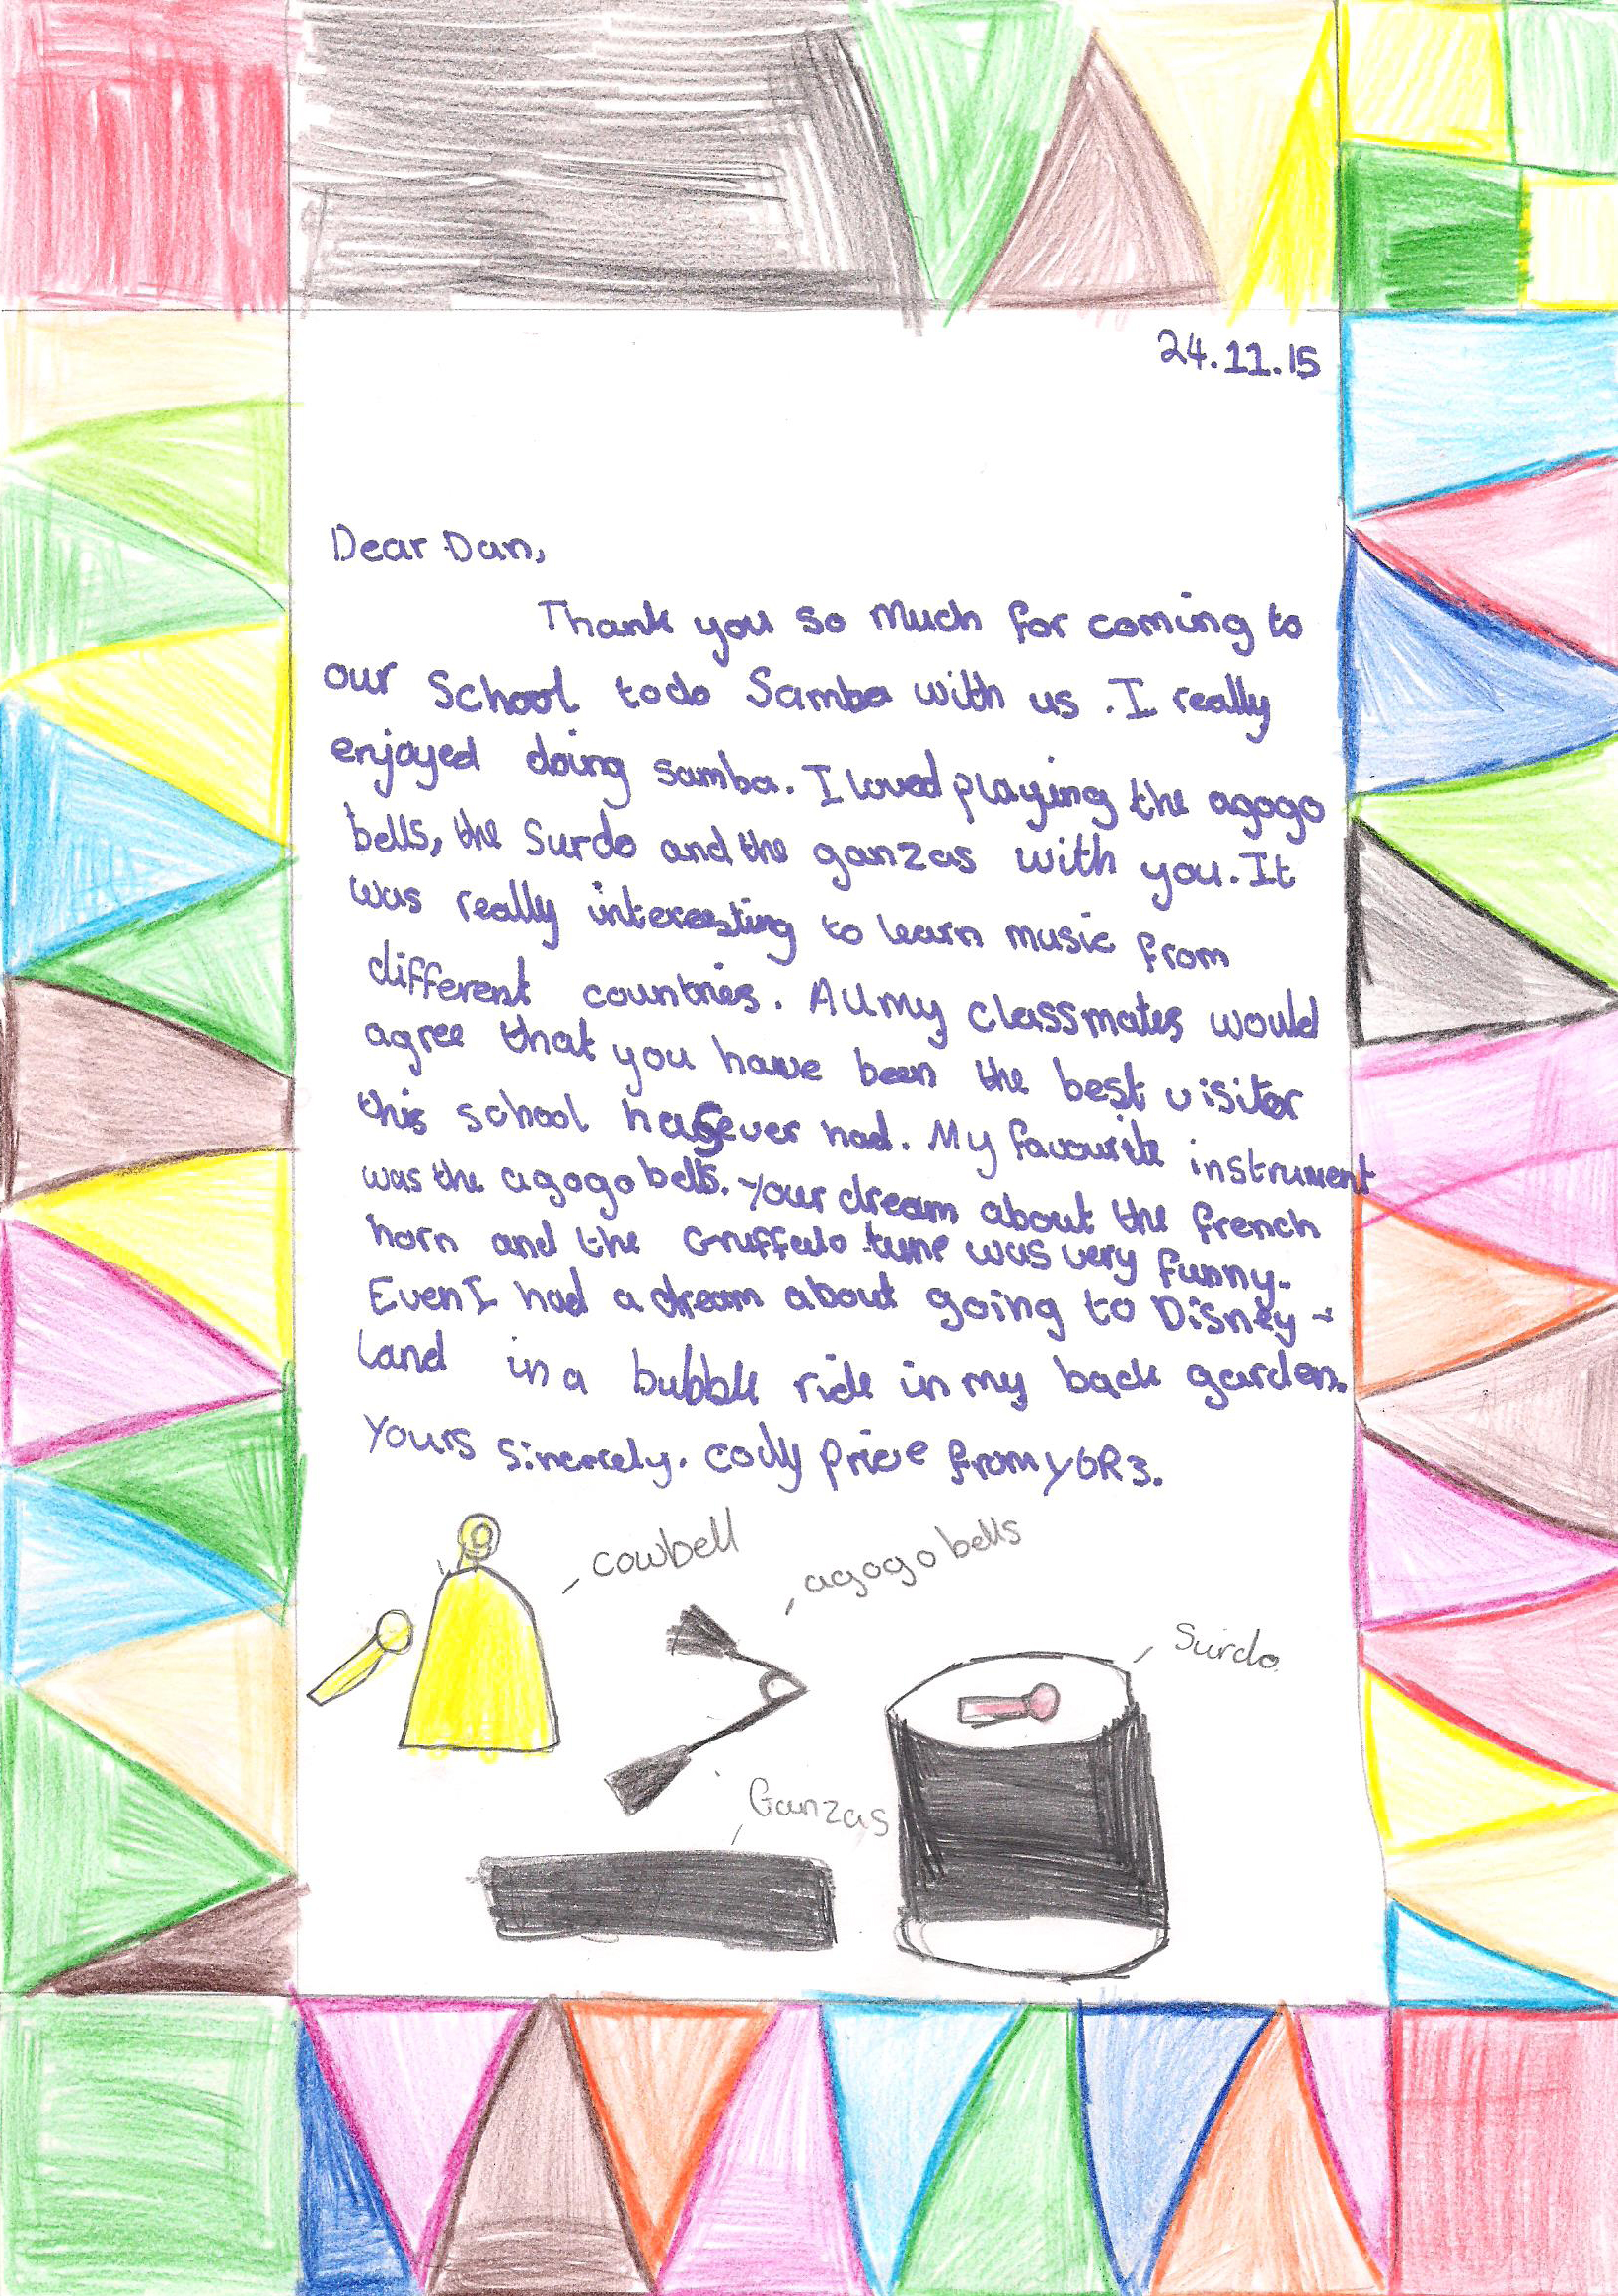 24.11.15
Dear Dan,
Thank you so much for coming to
our School to do Samba with us. I really
enjoyed doing samba. I loved playing the agogo
bells, the Surdo and the ganzas with you. It
was really interesting to learn music from
different countries. All my classmates would
agree that you have been the best visitor
this school has ever had. My favourite instrument
was the agogo bells. Your dream about the french
horn and the Gruffalo tune was very funny.
Even I had a dream about going to Disney-
land in a bubble ride in my back garden.
Yours Sincerely. Cody Price from Y6R3.
cowbell
agogo bells
Surdo
Ganzas